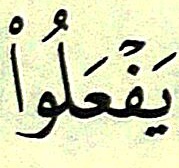 يَفْعَلُوا۟